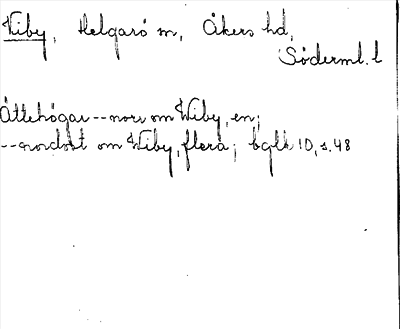 Viby, Helgarö sn, Åkers hd,
Söderml. l
Ättehögar -- norr om Wiby, en;
-- nordost om Wiby, flera; bglh 10, s. 48